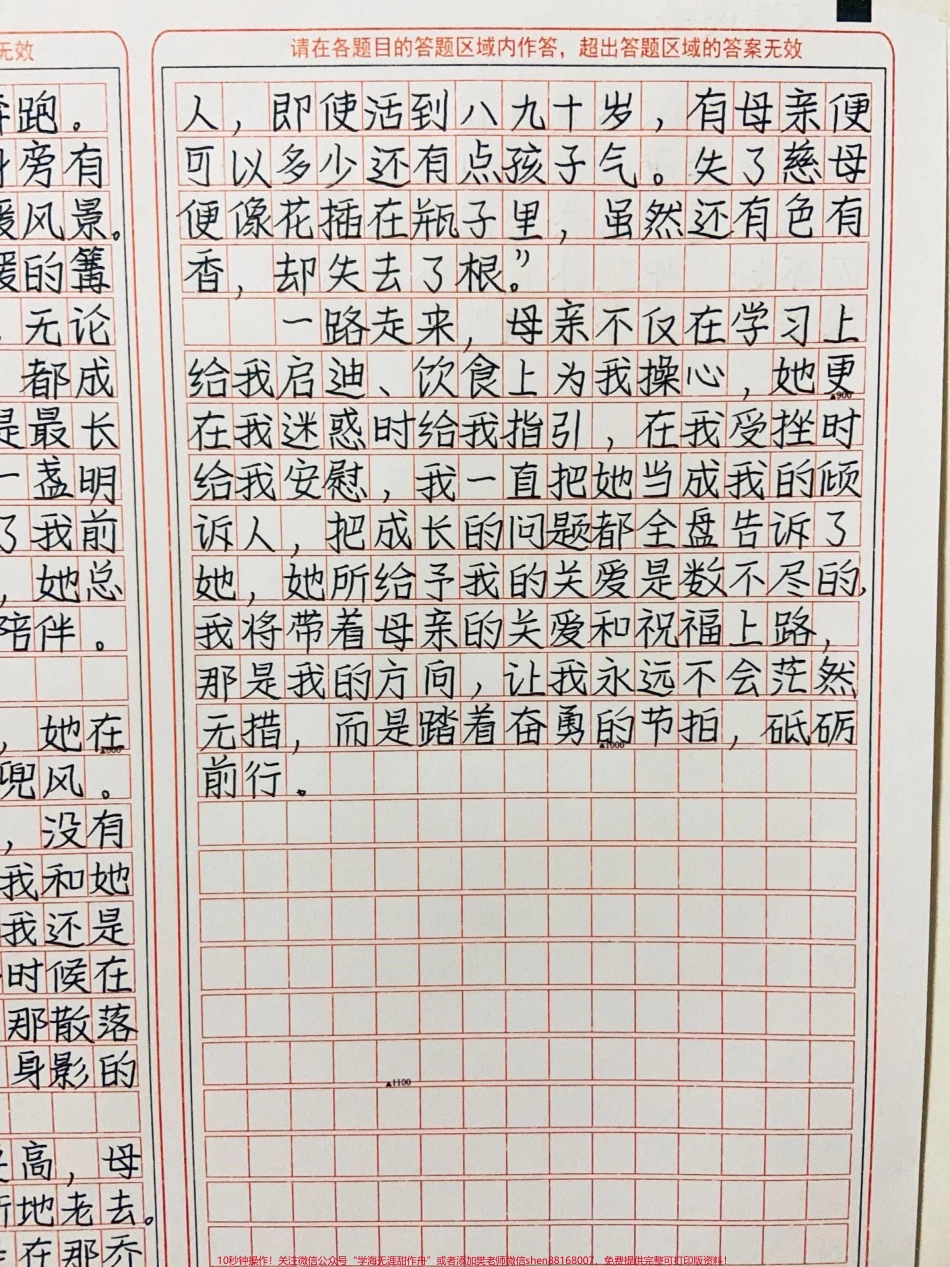 无效
奔跑。
身旁有
暖风景。
暖的篝
，无论
都成
是最长
一盏明
了我前
，她总
陪伴。
，她在
兜风。
，没有
我和她
我还是
时候在
那散落
身影的
高，母
渐地老去。
在那乔
请在各题目的答题区域内作答，超出答题区域的答案无效
人，即使活到八九十岁，有母亲便
可以多少还有点孩子气。失了慈母
便像花插在瓶子里，虽然还有色有
香，却失去了根。”
一路走来，母亲不仅在学习上
给我启迪、饮食上为我操心，她更
▲900
在我迷惑时给我指引，在我受挫时
给我安慰，我一直把她当成我的倾
诉人，把成长的问题都全盘告诉了
她，她所给予我的关爱是数不尽的，
我将带着母亲的关爱和祝福上路，
那是我的方向，让我永远不会茫然
无措，而是踏着奋勇的节拍，砥砺
▲1000
前行。
▲1100
10秒钟操作！关注微信公众号“学海无涯甜作舟”或者添加樊老师微信shen88168007，免费提供完整可打印版资料！